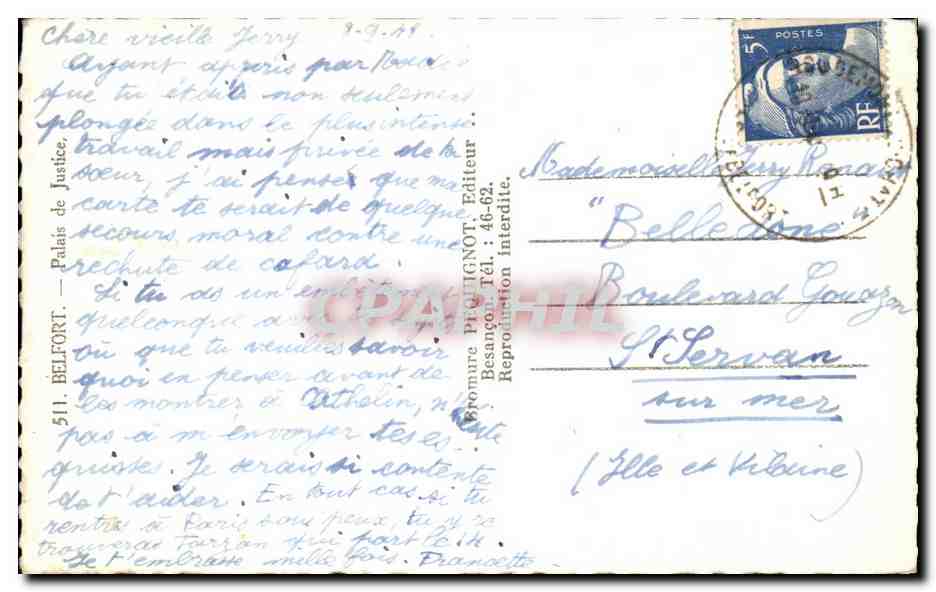 Chere vieille Jerry 8-9-48
Ayant appris par Nadi
que tu étais non seulement
plongée dans le plus intense
travail mais privée de ta
sœur, j'ai pensé que ma
carte te serait de quelque
secours moral contre une
rechute de cafard.
Si tu as un
quelconque
où que tu veuilles savoir
quoi en penser avant de
les montrer à Cathelin, n'hésite
pas à m'envoyer tes es-
quisses. Je serais si contente
de t'aider. En tout cas si tu
rentres à Paris sous peux, tu y re
trouveras Tarzan qui part le 14.
Je t'embrasse mille fois. Francette
511. BELFORT. — Palais de Justice.
Bromure PEQUIGNOT, Editeur
Besançon. Tél. : 46-62.
Reproduction interdite.
5F POSTES
RF
Mademoiselle Jerry
"Belledone
Boulevard Gouazon
St Servan
sur mer
(Ille et Vilaine)
CPAPHIL